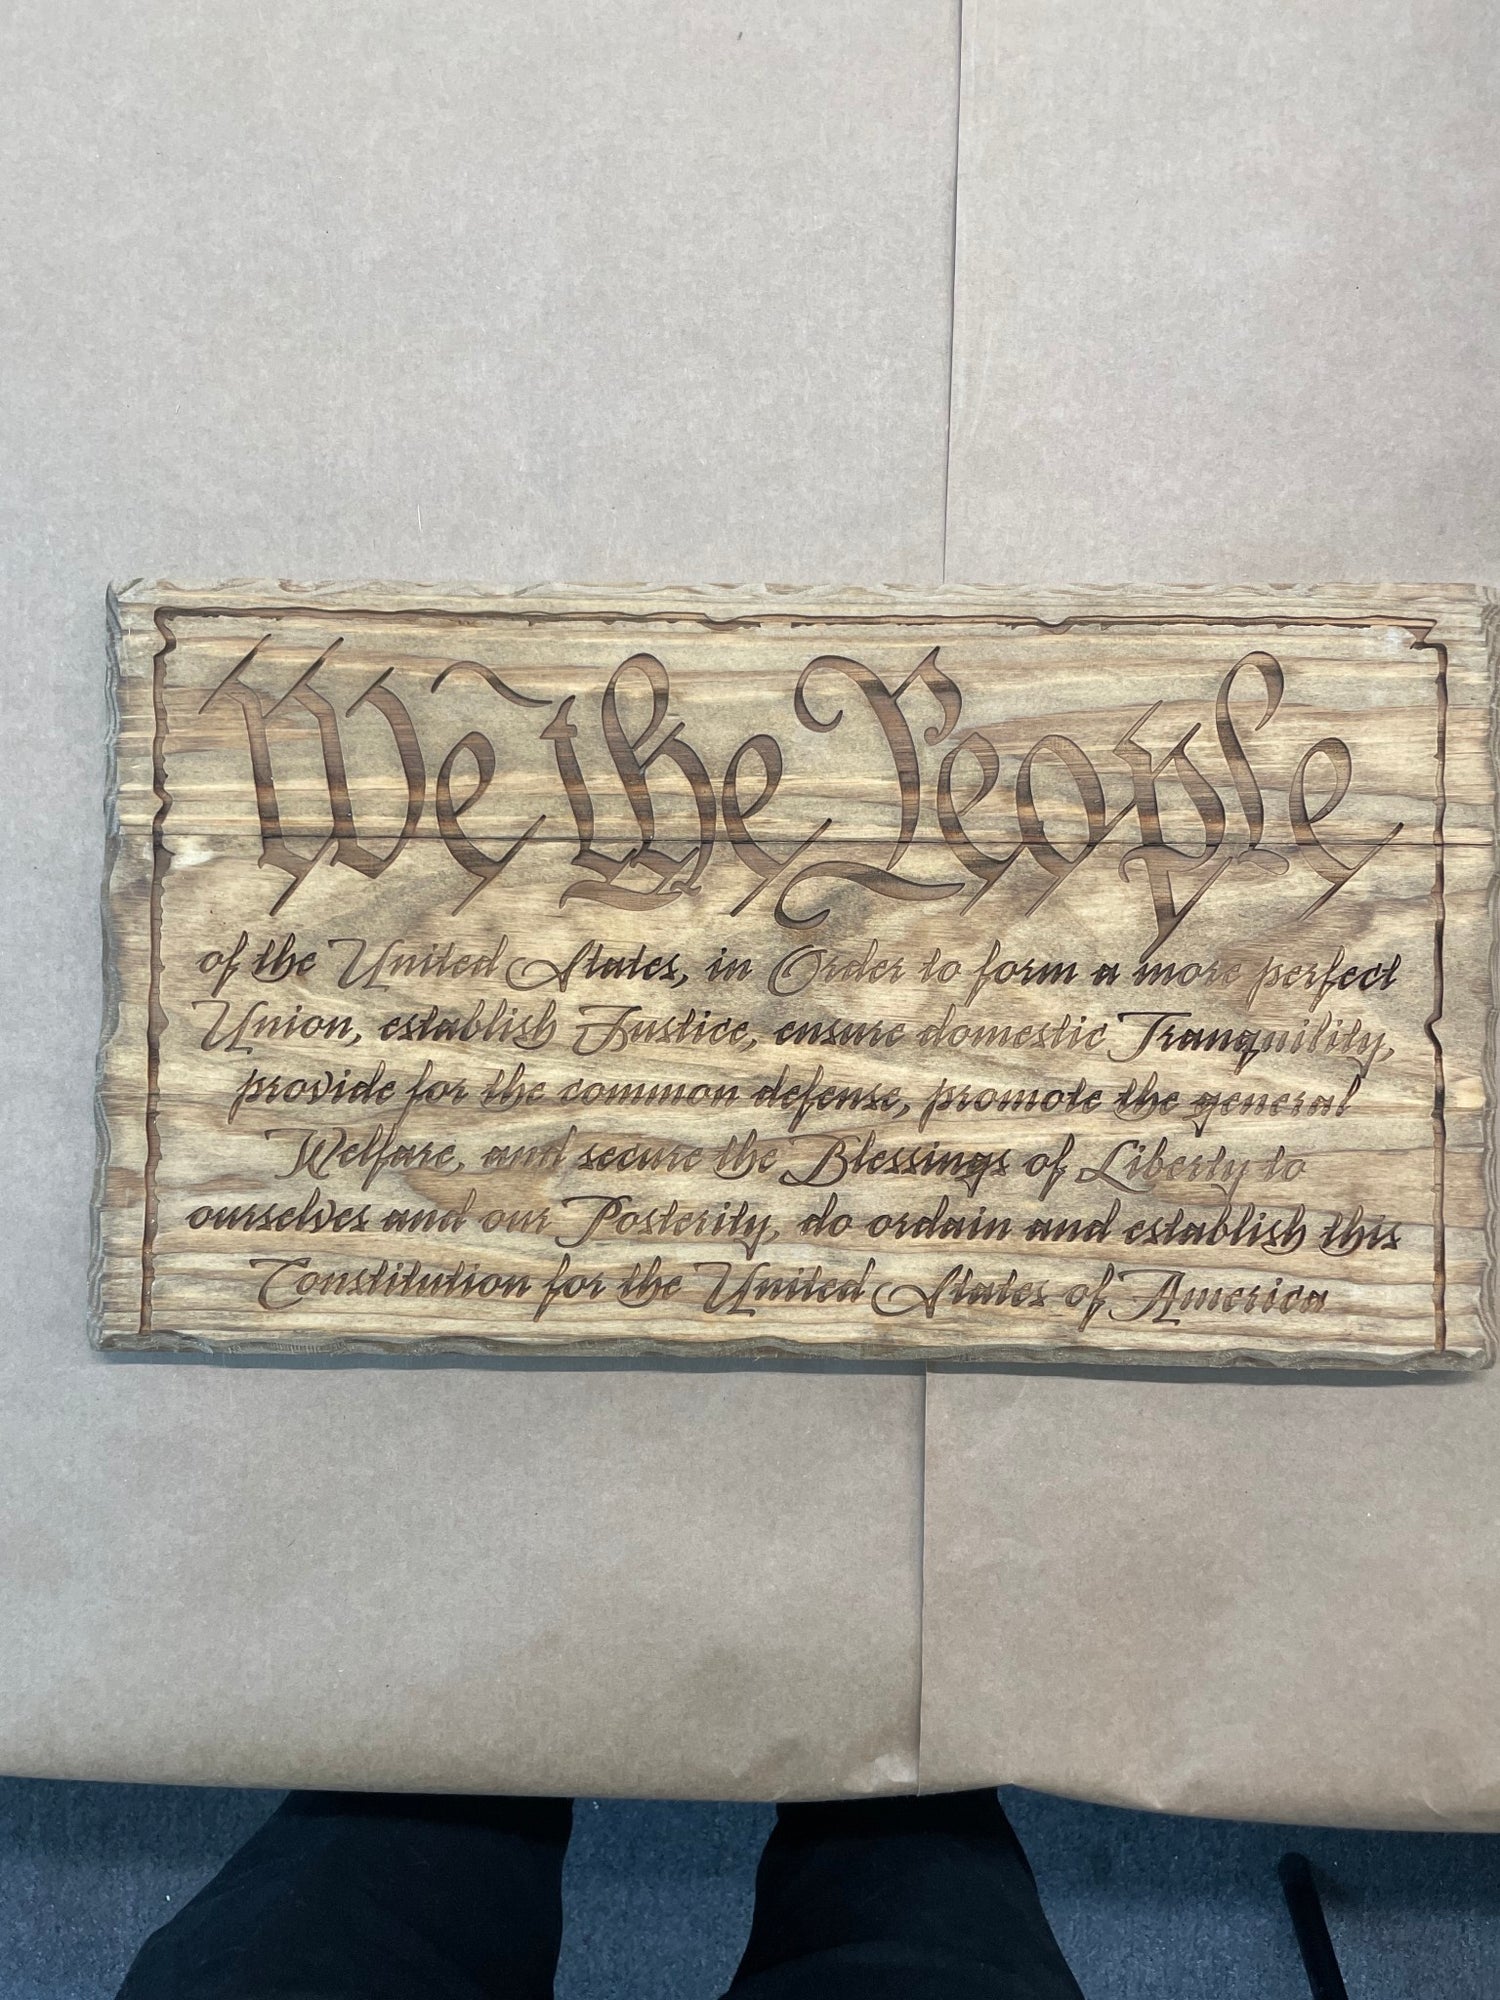 We the People
of the United States, in Order to form a more perfect
Union, establish Justice, ensure domestic Tranquility,
provide for the common defense, promote the general
Welfare, and secure the Blessings of Liberty to
ourselves and our Posterity, do ordain and establish this
Constitution for the United States of America